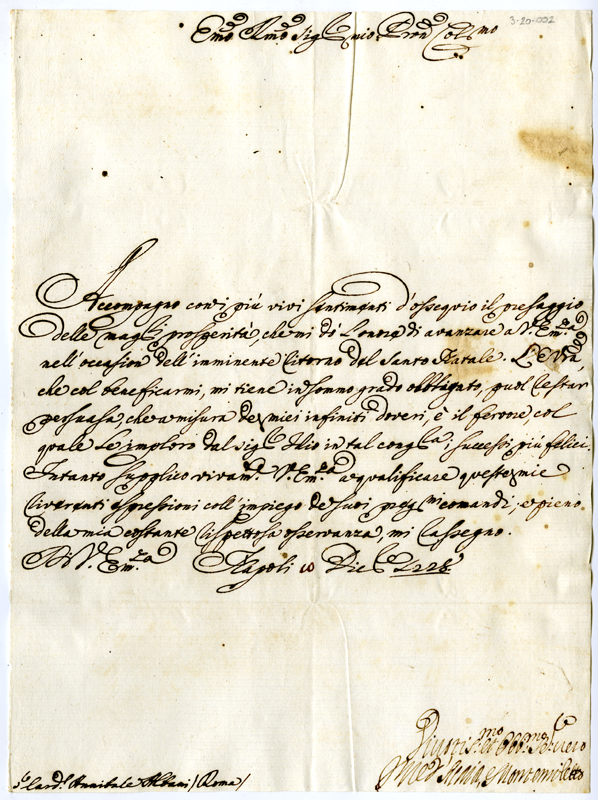 3-20-002
Em̃o Rm̃o Sig.r mio Pron̄ Col.mo
Accompagno con i più vivi sentimenti d'ossequio il presaggio
delle mag.ri prosperità, che mi dò l'onore di avanzare a V. Em.za
nell'occasion dell'imminente ritorno del Santo Natale. L'E.V.ra,
che col beneficarmi, mi tiene in sommo grado obbligato, puol restar
persuasa, che a misura de miei infiniti doveri, è il fervore, col
quale Le imploro dal Sig.r Idio in tal cong.ra i successi più felici.
Intanto supplico vivam.te V. Em.za a qualificare queste mie
riverenti espressioni coll'impiego de suoi preg.mi comandi; e pieno
della mia costante rispettosa osservanza, mi rassegno.
Di V. Em.za Napoli 10 Dic.re
Sr. Card.l Annibale Albani (Roma)
mo et Obb.mo Servo
e Montemiletto